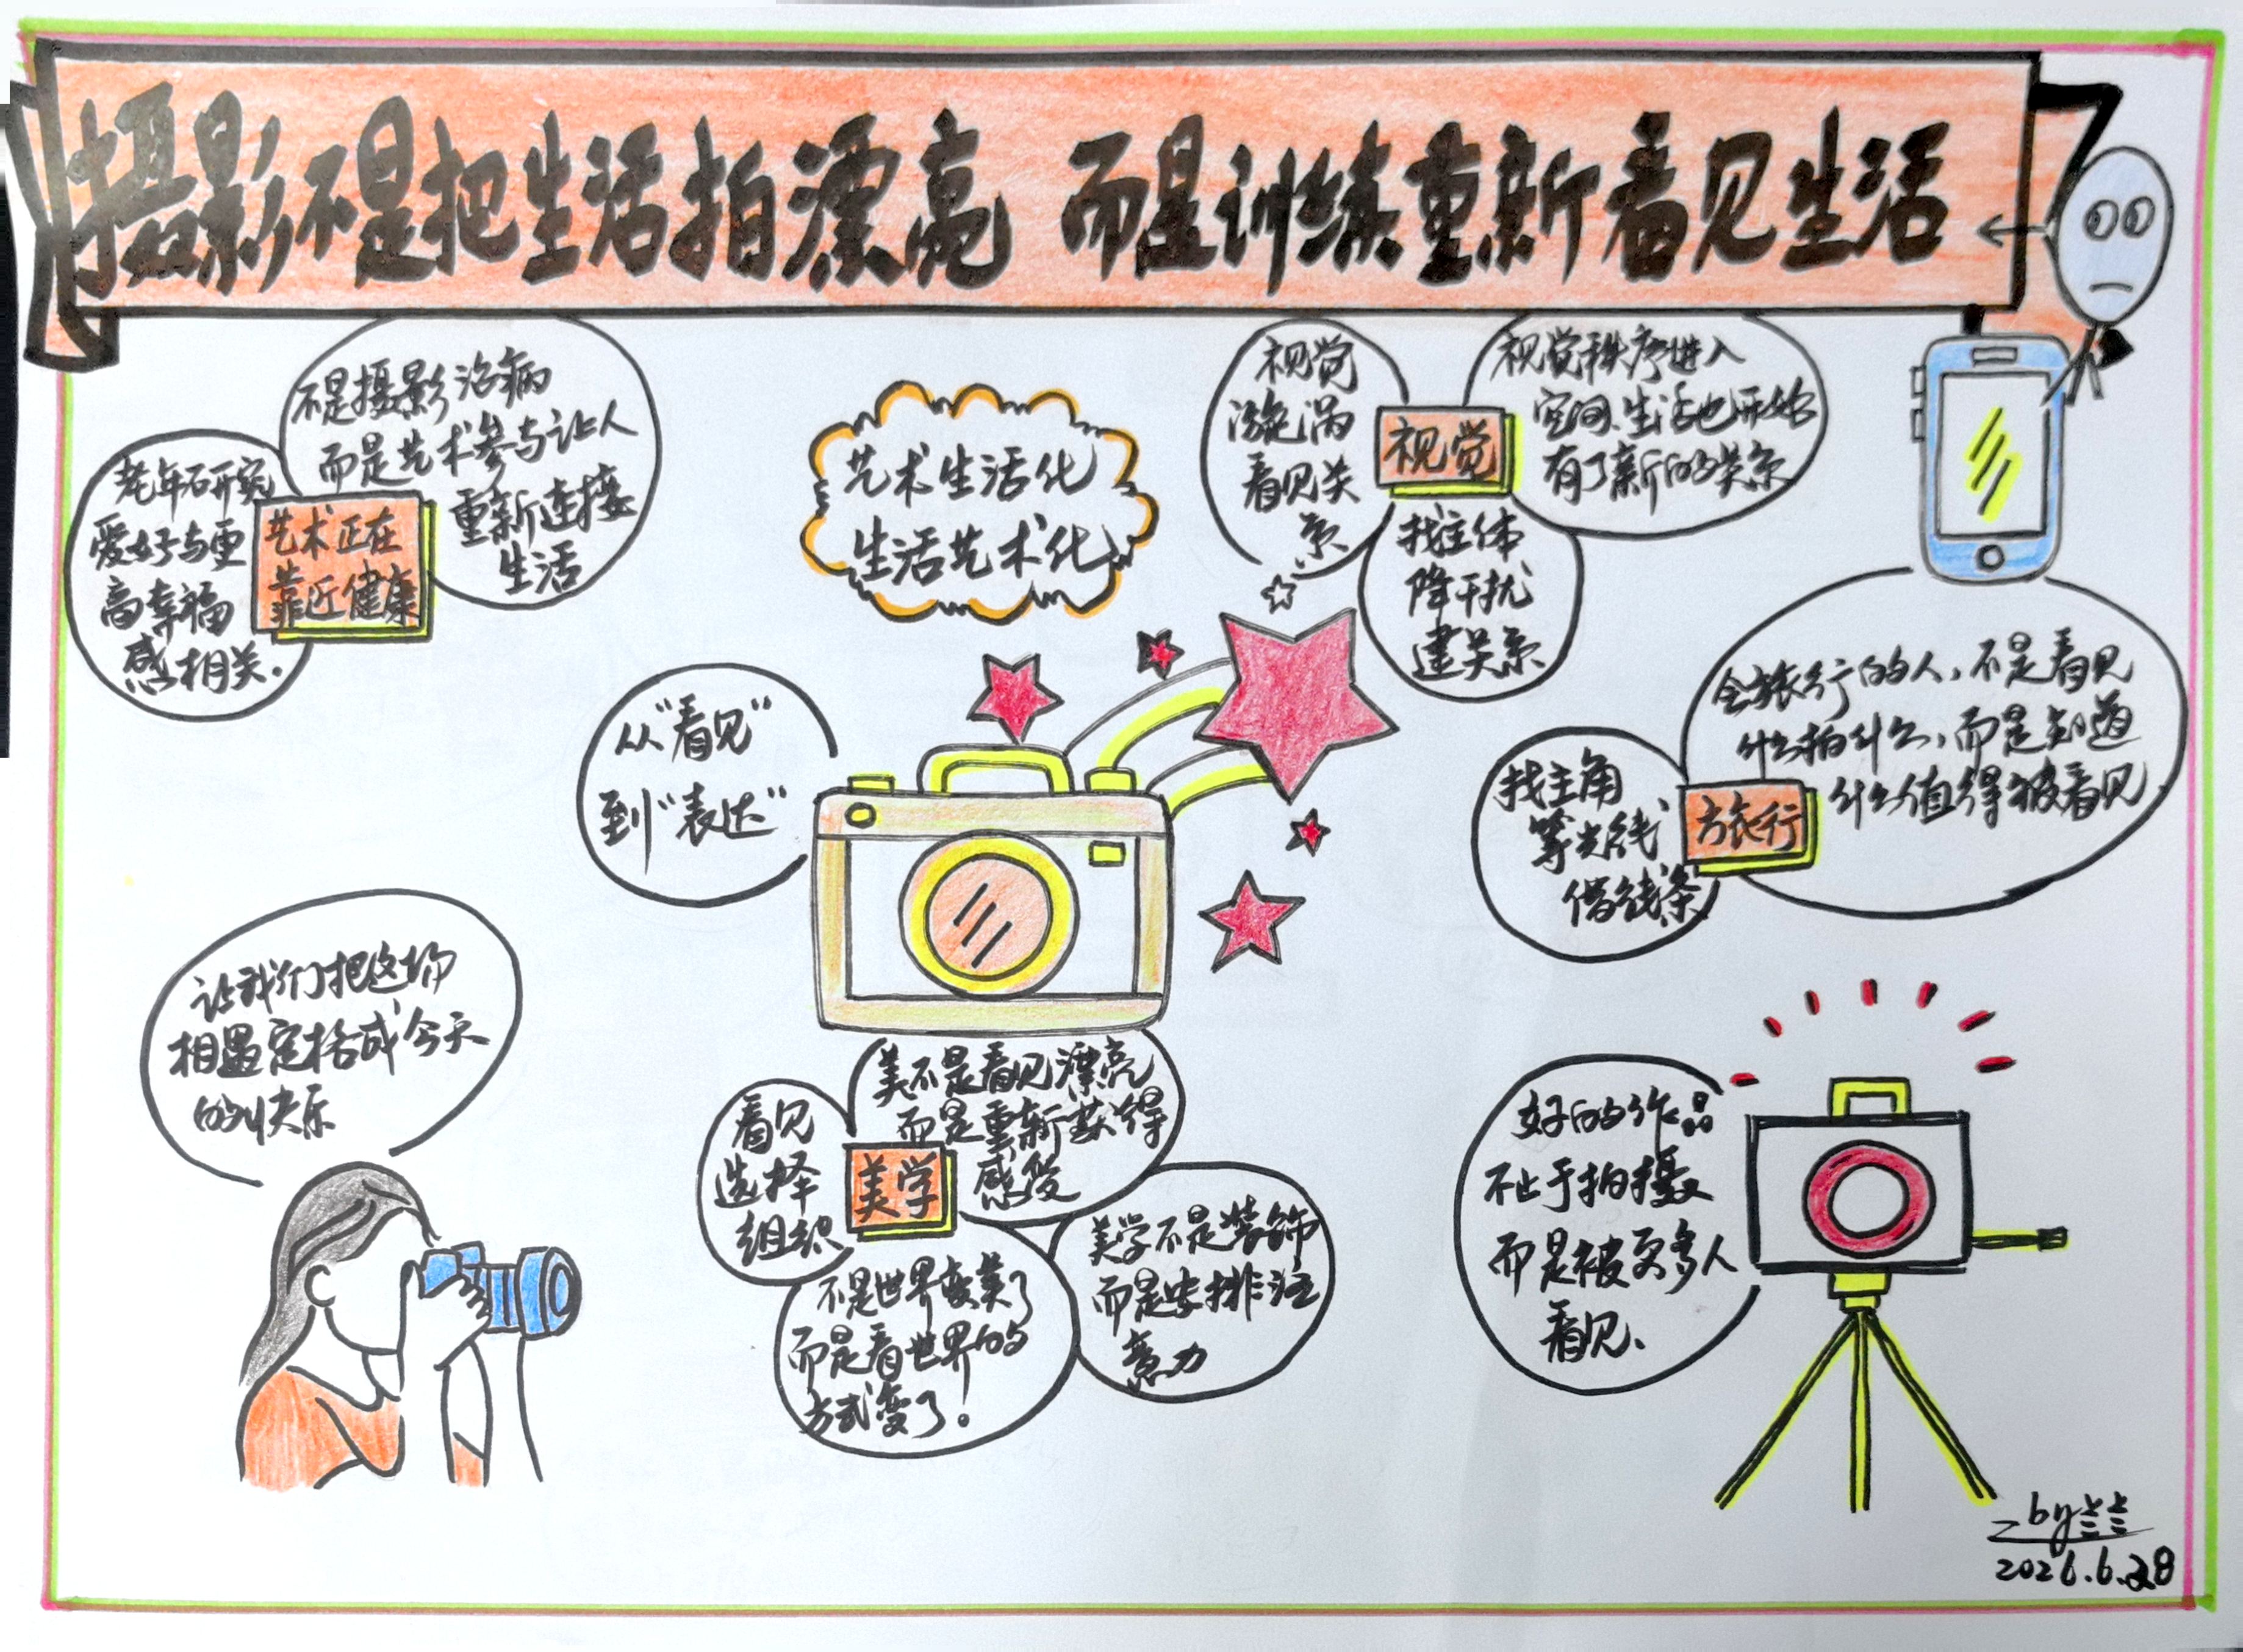 摄影不是把生活拍漂亮 而是训练重新看见生活
不是摄影治病
而是艺术参与让人
重新连接
生活
老年研究
爱好与更
高幸福
感相关.
艺术正在
靠近健康
艺术生活化
生活艺术化
视觉
漩涡
看见关
系
视觉
视觉秩序进入
空间、生活也开始
有了新的关系
找主体
降干扰
建关系
从“看见”
到“表达”
会旅行的人,不是看见
什么拍什么,而是知道
什么值得被看见
找主角
等光线
借线条
旅行
让我们把这场
相遇定格成今天
的快乐
美不是看见漂亮
而是重新获得
感受
看见
选择
组织
美学
不是世界变美了
而是看世界的
方式变了!
美学不是装饰
而是安排注
意力
好的作品
不止于拍摄
而是被更多人
看见、
by兰兰
2026.6.28